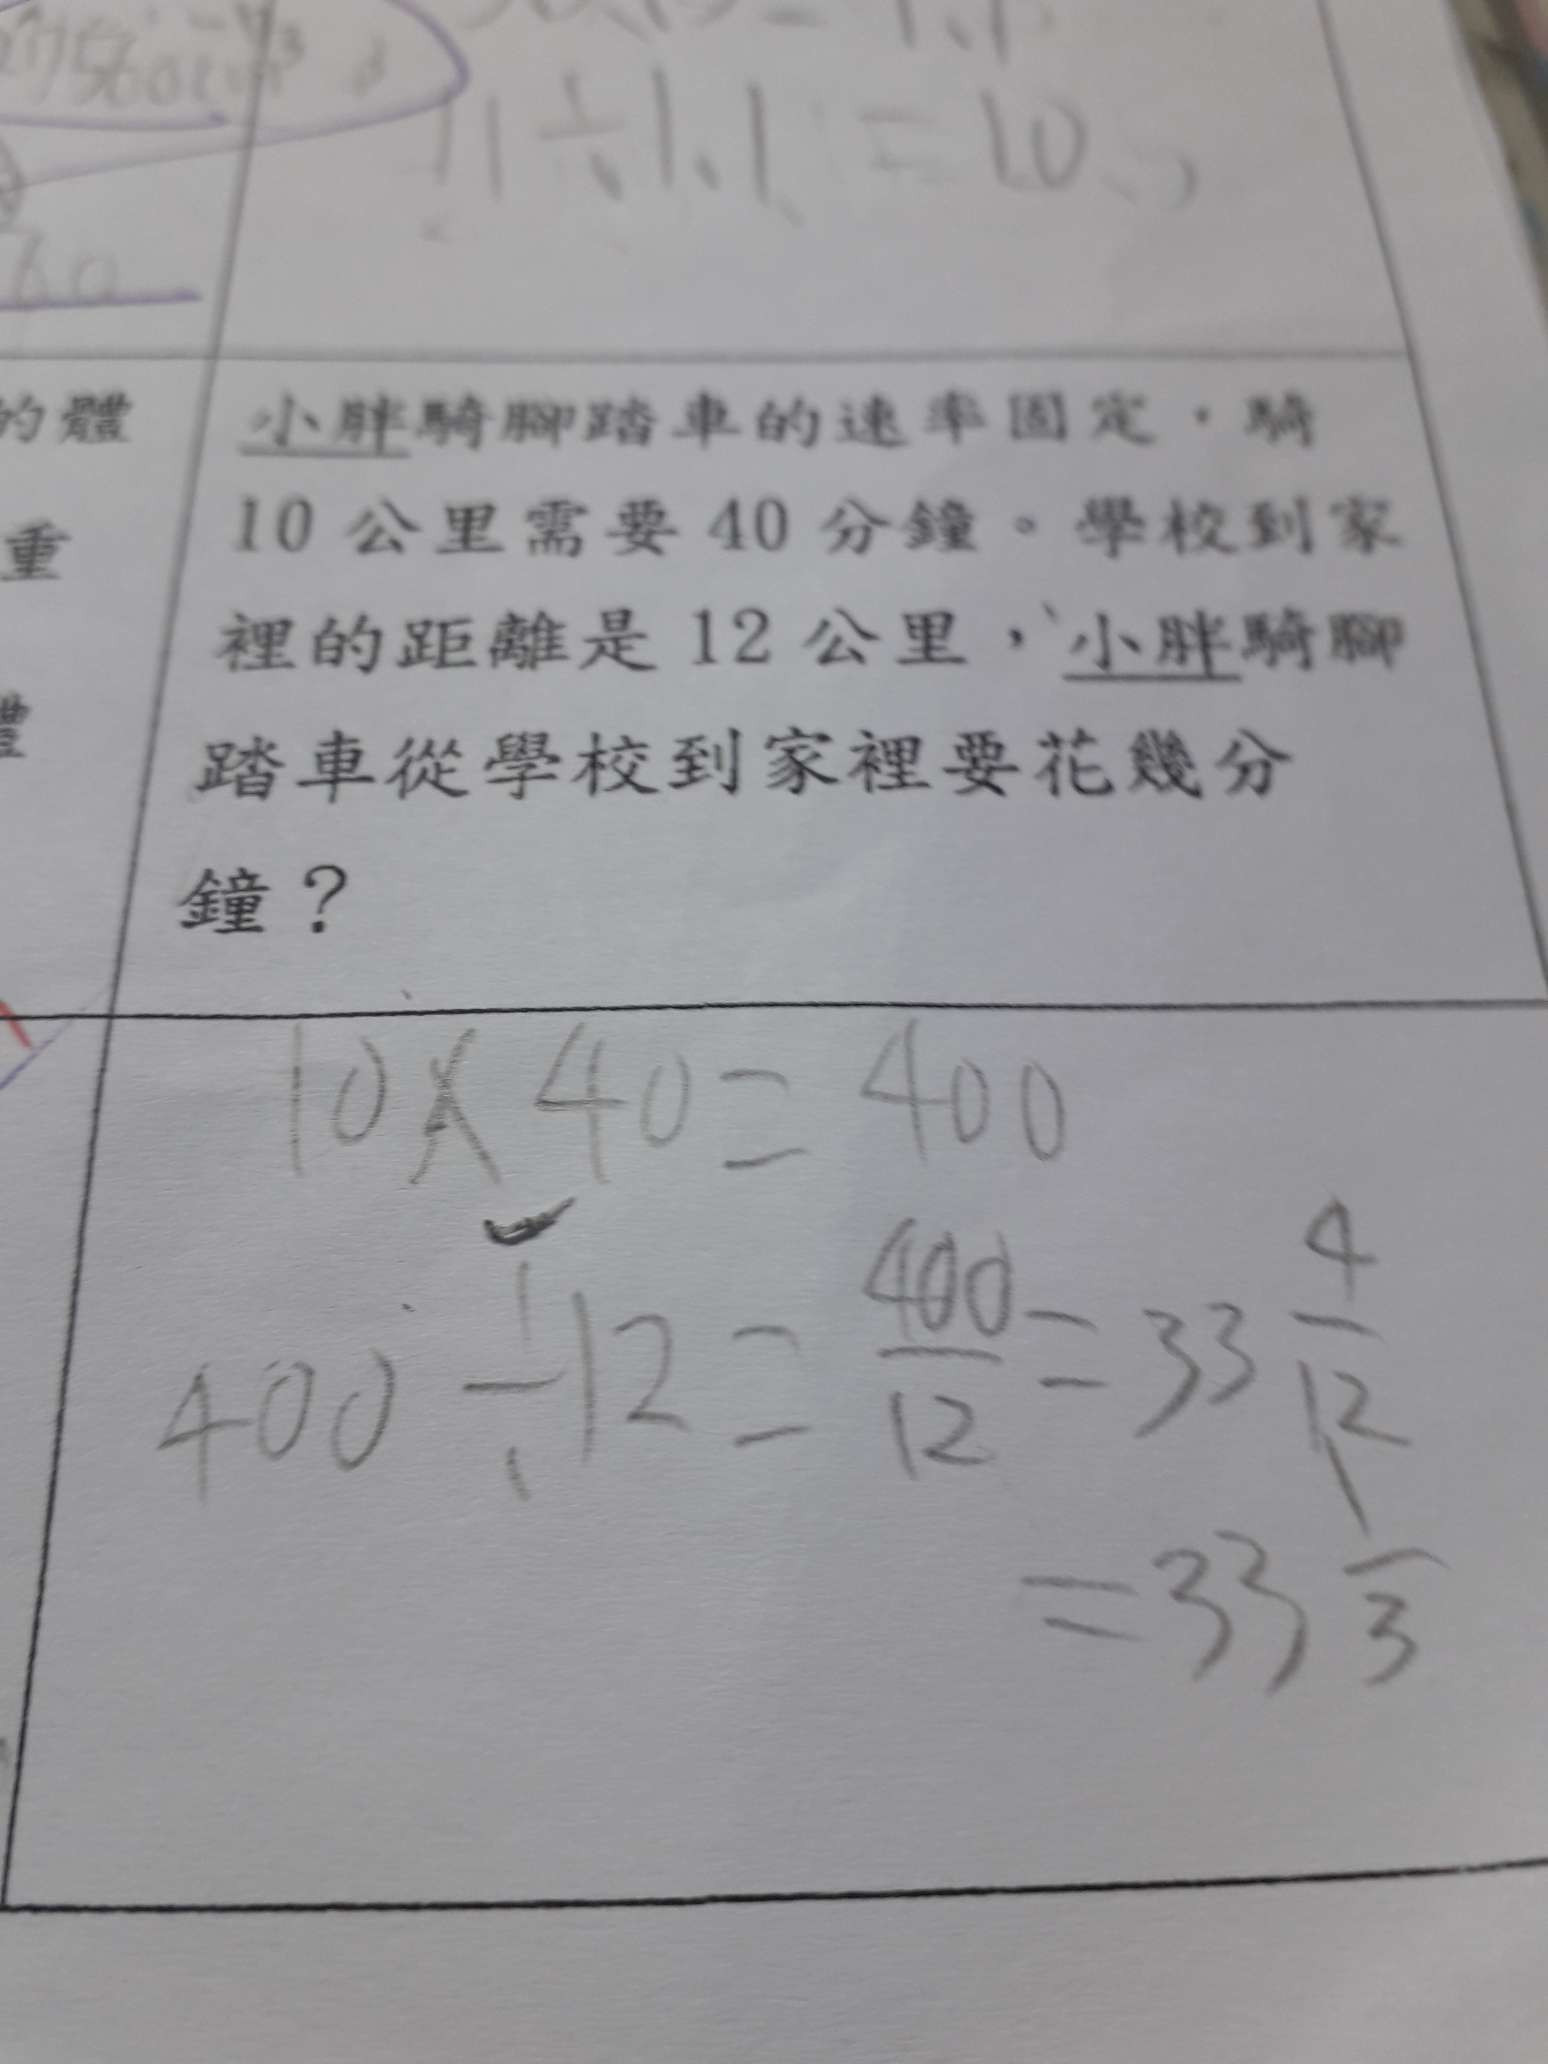 11÷1.1=10
60
的體
重
體
小胖騎腳踏車的速率固定，騎
10公里需要40分鐘。學校到家
裡的距離是12公里，小胖騎腳
踏車從學校到家裡要花幾分
鐘？
10×40=400
400÷12=400/12=33 4/12
=33 1/3